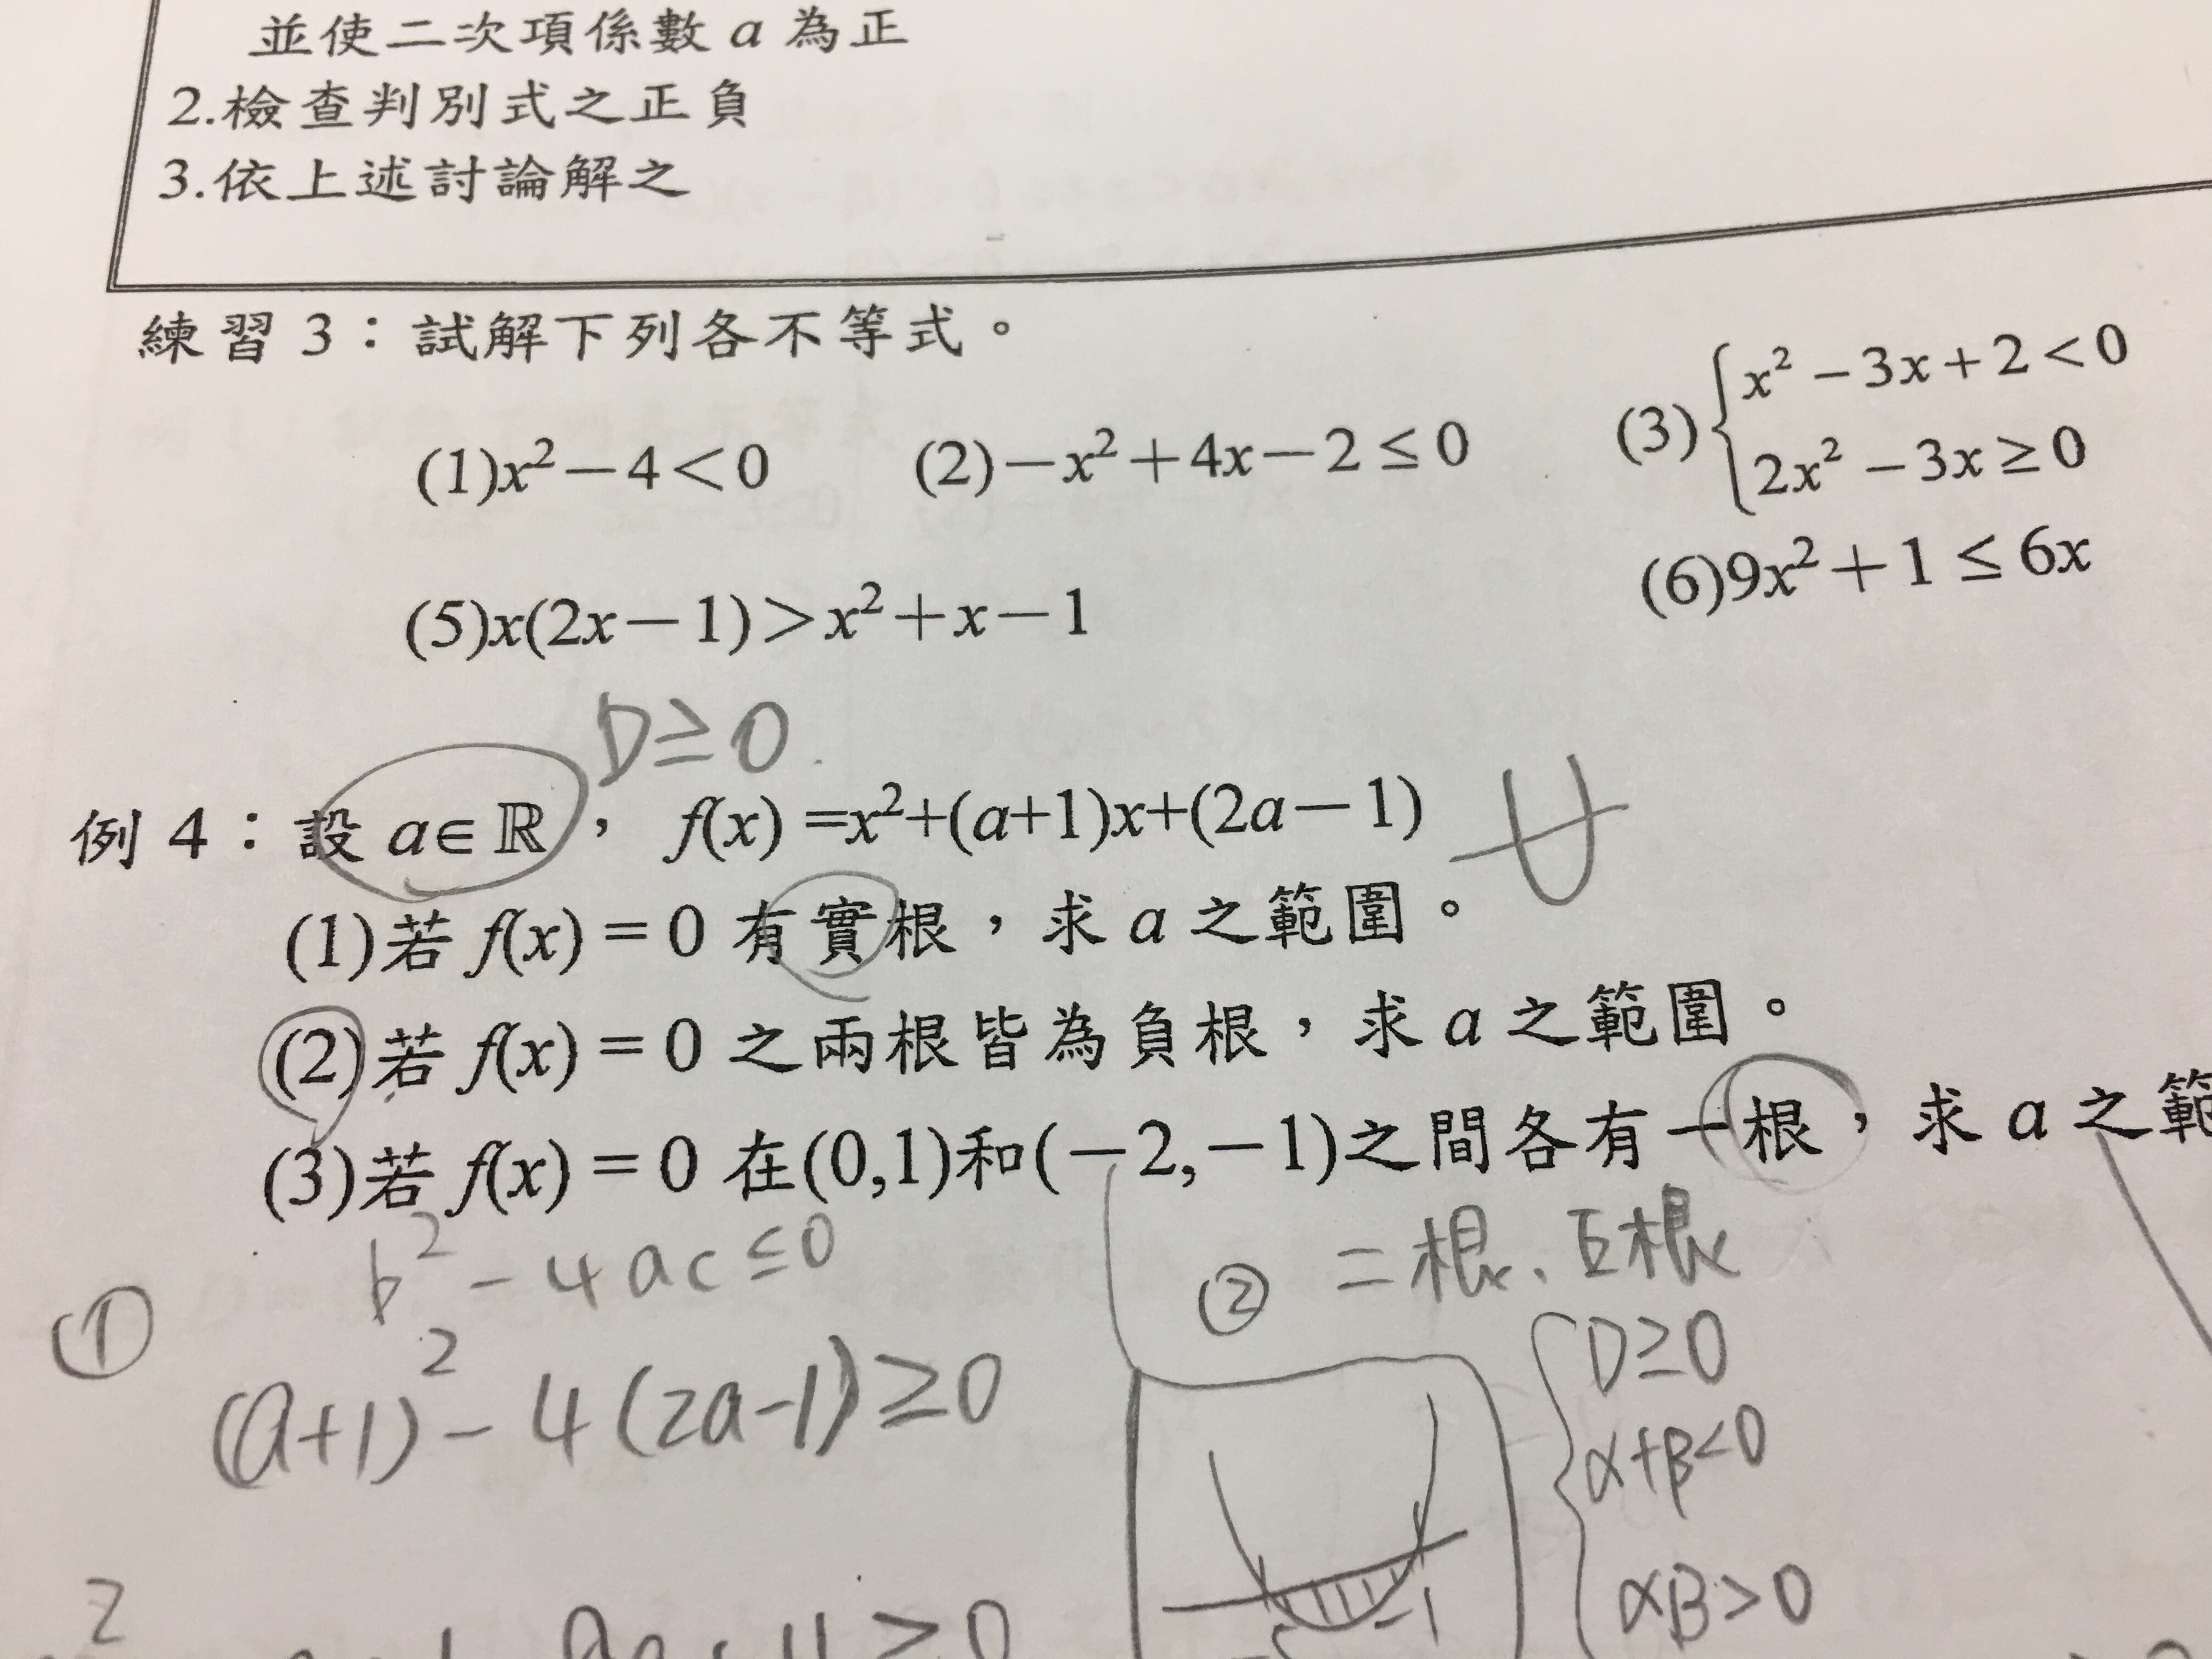 並使二次項係數 a 為正
2.檢查判別式之正負
3.依上述討論解之
練習 3：試解下列各不等式。
(1)x²－4＜0 (2)－x²＋4x－2≤0 (3){x²－3x＋2＜0
2x²－3x≥0
(5)x(2x－1)＞x²＋x－1 (6)9x²＋1≤6x
D≧0
例 4：設 a∈ℝ，f(x) =x²+(a+1)x+(2a－1)
(1)若 f(x)＝0 有實根，求 a 之範圍。
(2)若 f(x)＝0 之兩根皆為負根，求 a 之範圍。
(3)若 f(x)＝0 在(0,1)和(－2,－1)之間各有一根，求 a 之範
① b²-4ac≤0
(a+1)²-4(2a-1)≥0
② 二根、
D≥0
α+β<0
αβ>0
-1
2
≥0